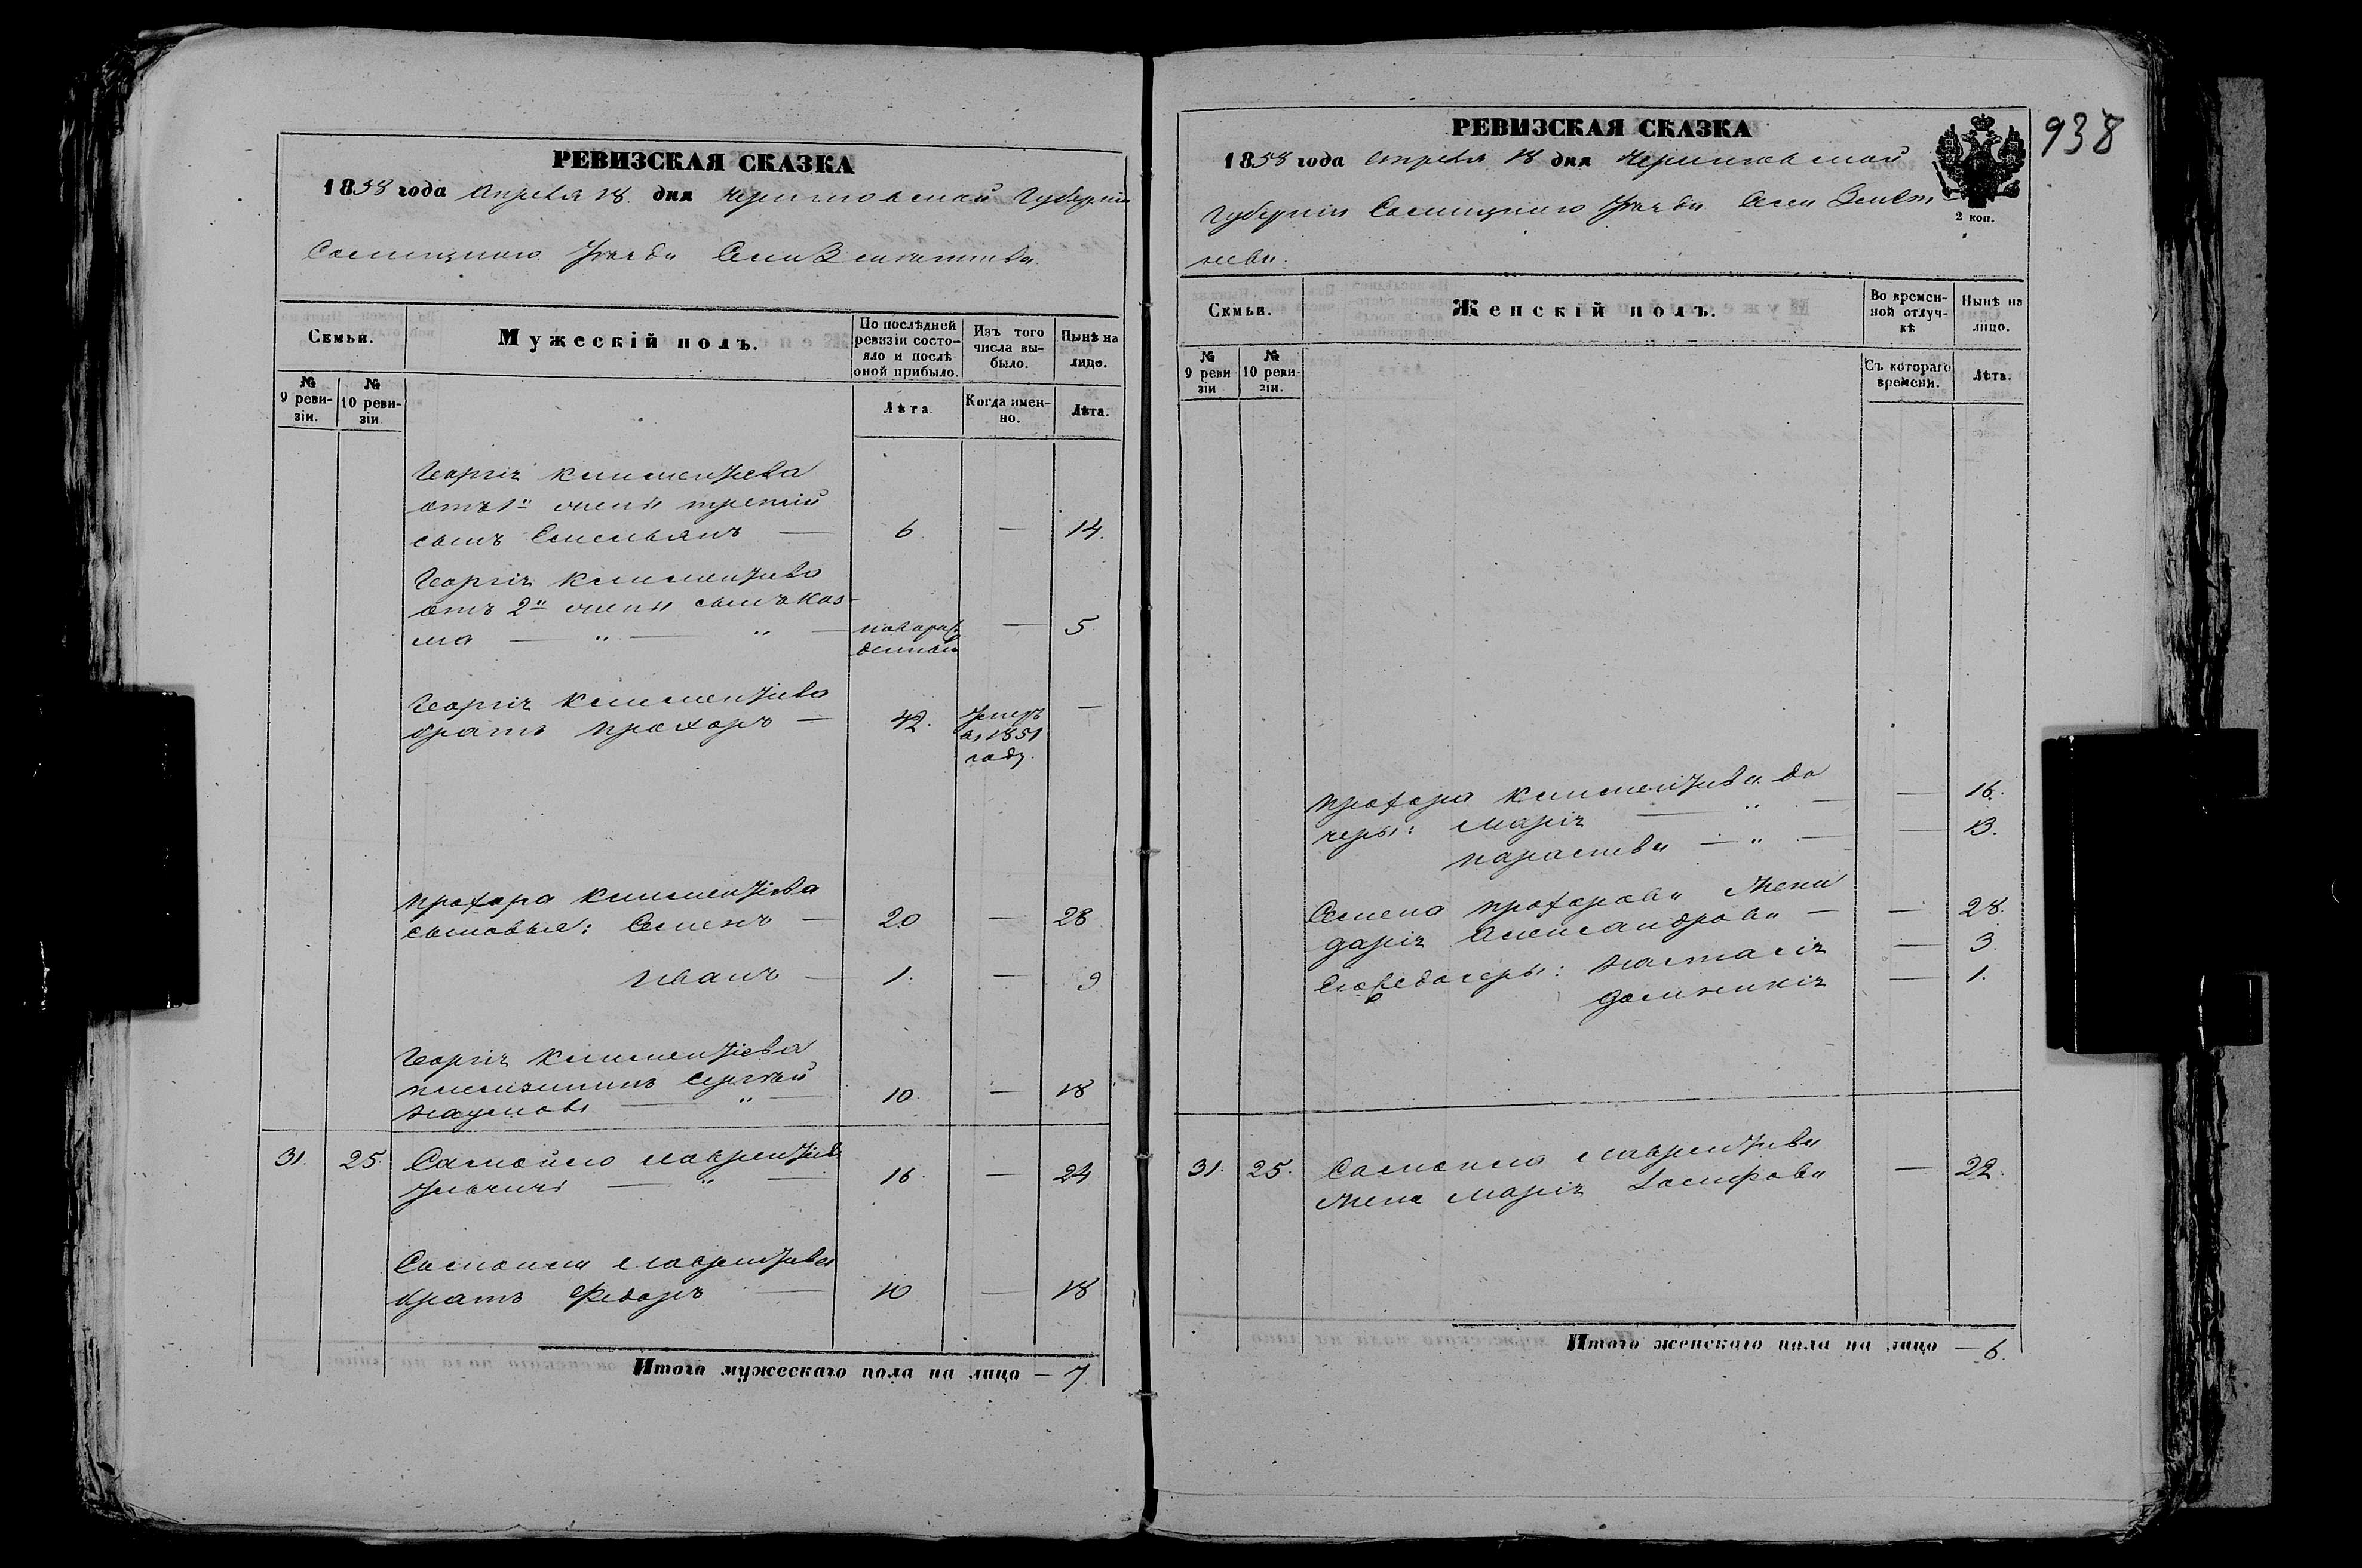 РЕВИЗСКАЯ СКАЗКА
1858 года Апреля 18 дня Черниговской Губерніи
Сосницкаго Уезда Села
Семьи.
Мужескій полъ.
По послѣдней ревизіи состояло и послѣ оной прибыло.
Изъ того числа выбыло.
Нынѣ на лицо.
№ 9 ревизіи.
№ 10 ревизіи
Лѣта
Когда именно.
Лѣта.
Георгія Климентіева
отъ 1й жены третій
сынъ Емельянъ — 6 — 14.
Георгія Климентіева
отъ 2й жены сынъ Коз-
ма — " — " — новорожденный — 5
Георгія Климентіева
братъ Прохоръ — 42. Умеръ въ 1851 году. —
Прохора Климентіева
сыновья: Семенъ — 20 — 28
Иванъ — 1. — 9
Георгія Климентіева
племянникъ Сергѣй
Наумовъ — " — 10. — 18
31. 25. Самойло Лаврентіевъ
— " — 16. — 24
Самойла Лаврентіева
братъ Федоръ — 10 — 18
Итого мужескаго пола на лицо — 7
РЕВИЗСКАЯ СКАЗКА
938
1858 года Апреля 18 дня Черниговской
Губерніи Сосницкаго Уезда Села
2 коп.
Семьи.
Женскій полъ.
Во временной отлучкѣ
Нынѣ на лицо.
№ 9 ревизіи
№ 10 ревизіи.
Съ котораго времени.
Лѣта.
Прохора Климентіева до
чери: Марія — " — — 16.
Параскева — " — — 13.
Семена Прохорова жена
Дарія Александрова — — 28.
Его дочери: Настасія — 3
Домникія — 1.
31. 25. Самойла Лаврентіева
жена Марія Іосифова — 22.
Итого женскаго пола на лицо — 6.